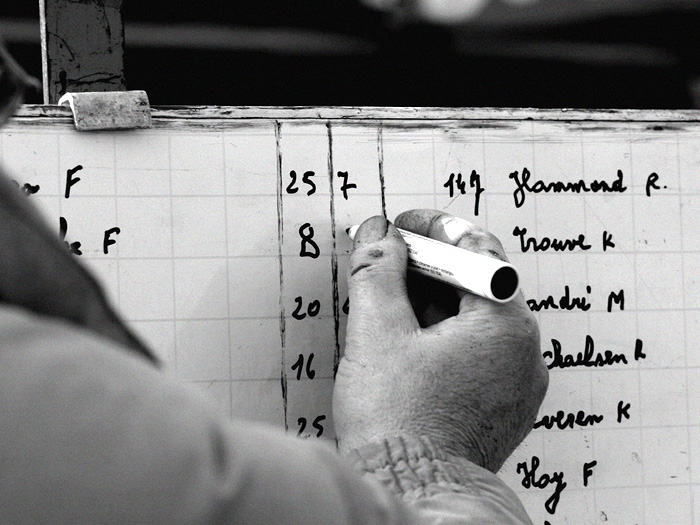 F 25 7 147 Hammond R.
F 8 Trouve K
20 andré M
16 chaelsen R
25 versen K
Hoy F